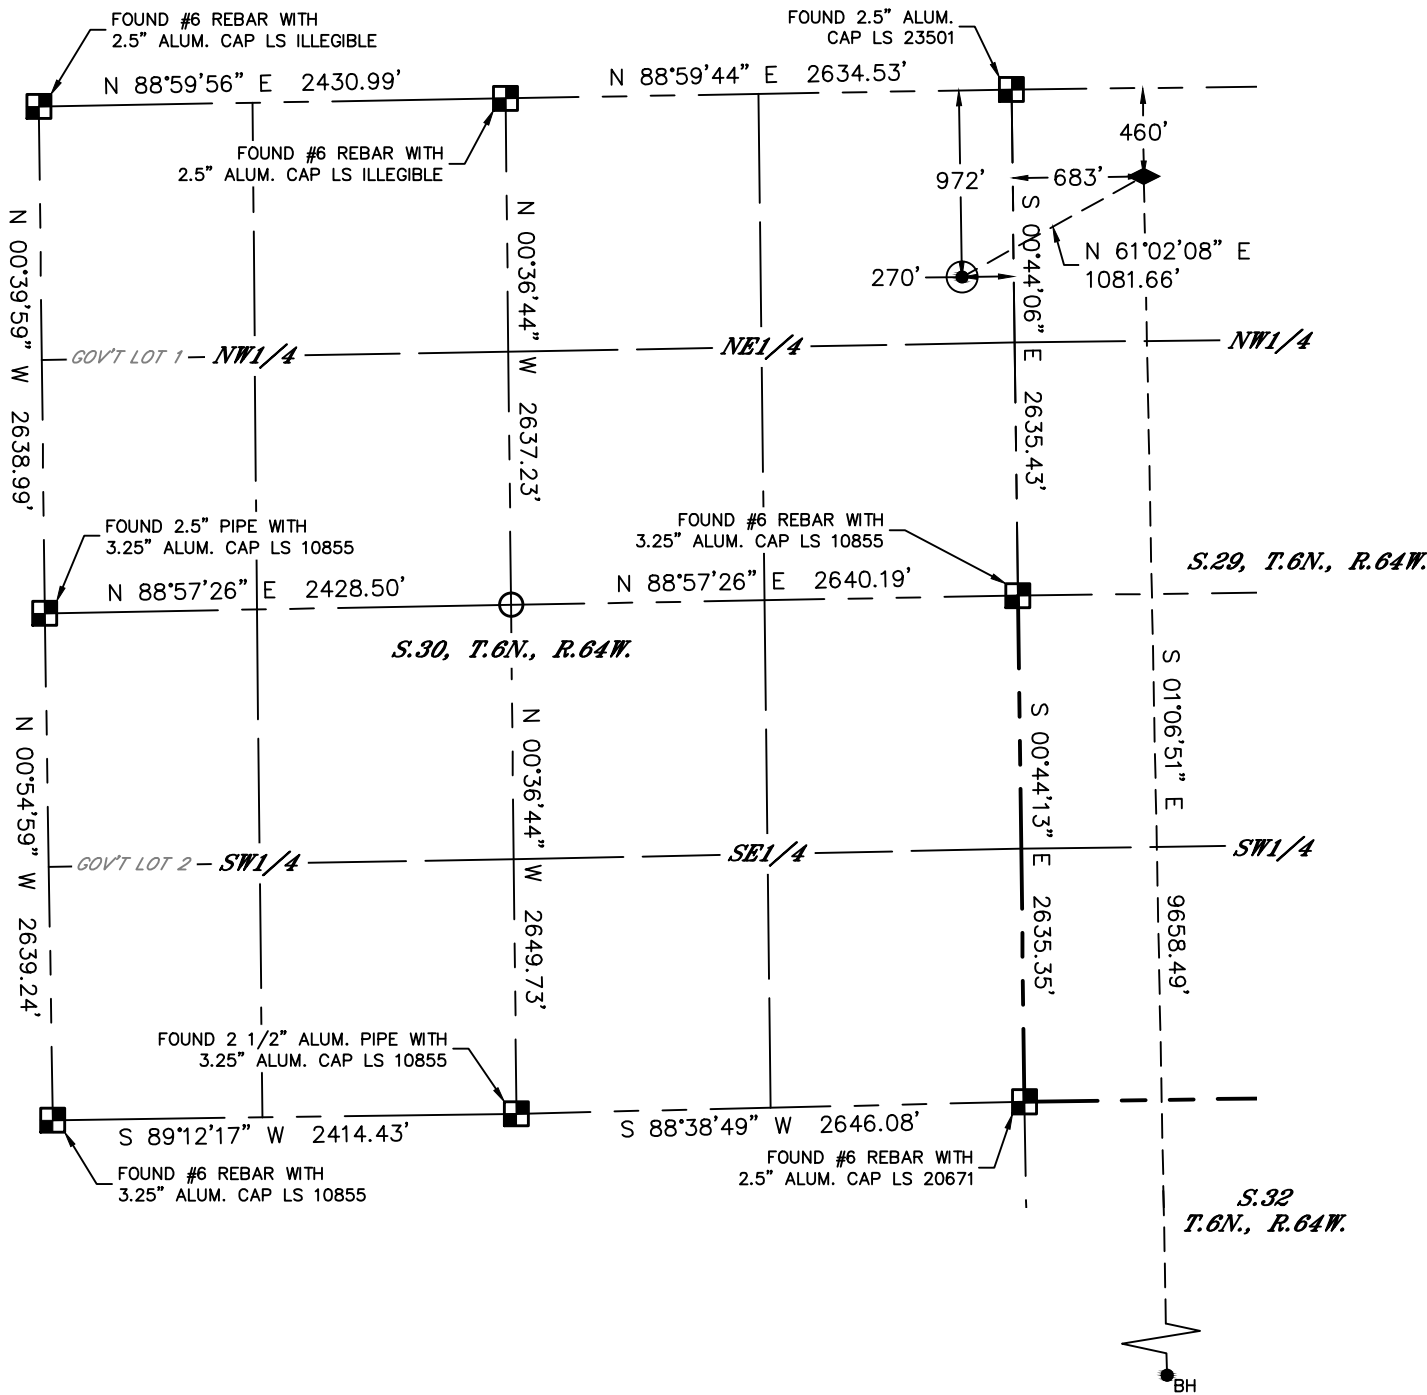 FOUND #6 REBAR WITH
2.5" ALUM. CAP LS ILLEGIBLE
FOUND 2.5" ALUM.
CAP LS 23501
N 88°59'56" E 2430.99'
N 88°59'44" E 2634.53'
460'
FOUND #6 REBAR WITH
2.5" ALUM. CAP LS ILLEGIBLE
972'
683'
N 00°39'59" W 2638.99'
N 00°36'44" W 2637.23'
S 00°44'06" E 2635.43'
N 61°02'08" E
1081.66'
270'
GOV'T LOT 1
NW1/4
NE1/4
NW1/4
FOUND 2.5" PIPE WITH
3.25" ALUM. CAP LS 10855
FOUND #6 REBAR WITH
3.25" ALUM. CAP LS 10855
S.29, T.6N., R.64W.
N 88°57'26" E 2428.50'
N 88°57'26" E 2640.19'
S.30, T.6N., R.64W.
N 00°54'59" W 2639.24'
N 00°36'44" W 2649.73'
S 00°44'13" E 2635.35'
S 01°06'51" E 9658.49'
GOV'T LOT 2
SW1/4
SE1/4
SW1/4
FOUND 2 1/2" ALUM. PIPE WITH
3.25" ALUM. CAP LS 10855
S 89°12'17" W 2414.43'
S 88°38'49" W 2646.08'
FOUND #6 REBAR WITH
3.25" ALUM. CAP LS 10855
FOUND #6 REBAR WITH
2.5" ALUM. CAP LS 20671
S.32
T.6N., R.64W.
BH